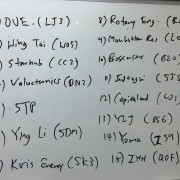 OUE. (LJ3)
) Wing Tai (W05)
) Starhub (CC3)
) Valuetronics (BN2)
) STP
) Ying Li (5DM)
) Kris Energy (SK3)
8) Rotary Eng.
9) Manhattan Res (L0
10) Boscreas (B20
11) Indoagri (5JS
12) Capitaland (C31
13) YZJ (BS6)
14) Yoma (Z59)
15) IHH (Q0F)